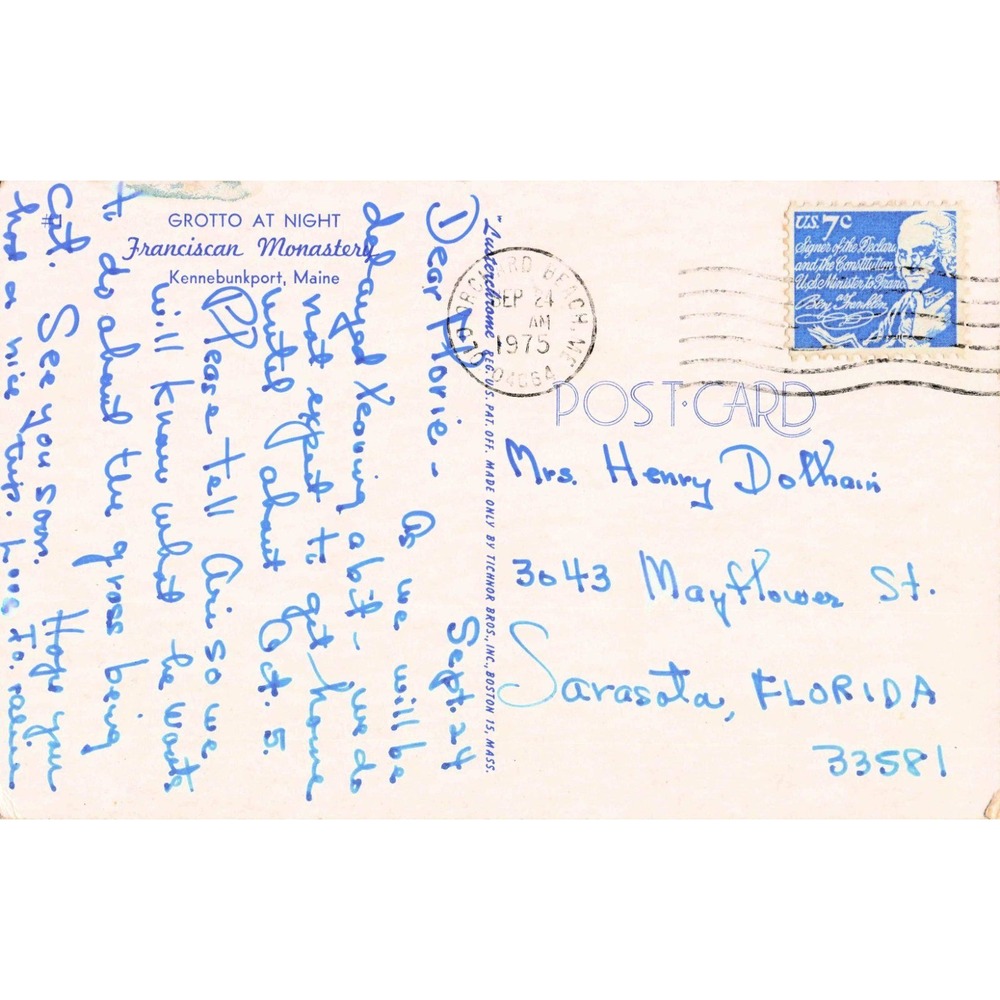 GROTTO AT NIGHT
Franciscan Monastery
Kennebunkport, Maine
Sept. 24
Dear Florie -
As we will be
delayed leaving a bit - we do
not expect to get home
until about Oct. 5.
Please tell Ari so we
will know what he wants
to do about the grass being
cut. See you soon. Hope you
had a nice trip. Love
"Lusterchrome" REG. U.S. PAT. OFF. MADE ONLY BY TICHNOR BROS., INC., BOSTON 15, MASS.
ORCHARD BEACH, ME.
SEP 24
AM
1975
OLD 04064
U.S. 7c
Signer of the Declara
and the Constitution
U.S. Minister to Franc
Benj Franklin
POST·CARD
Mrs. Henry Dolhain
3043 Mayflower St.
Sarasota, FLORIDA
33581